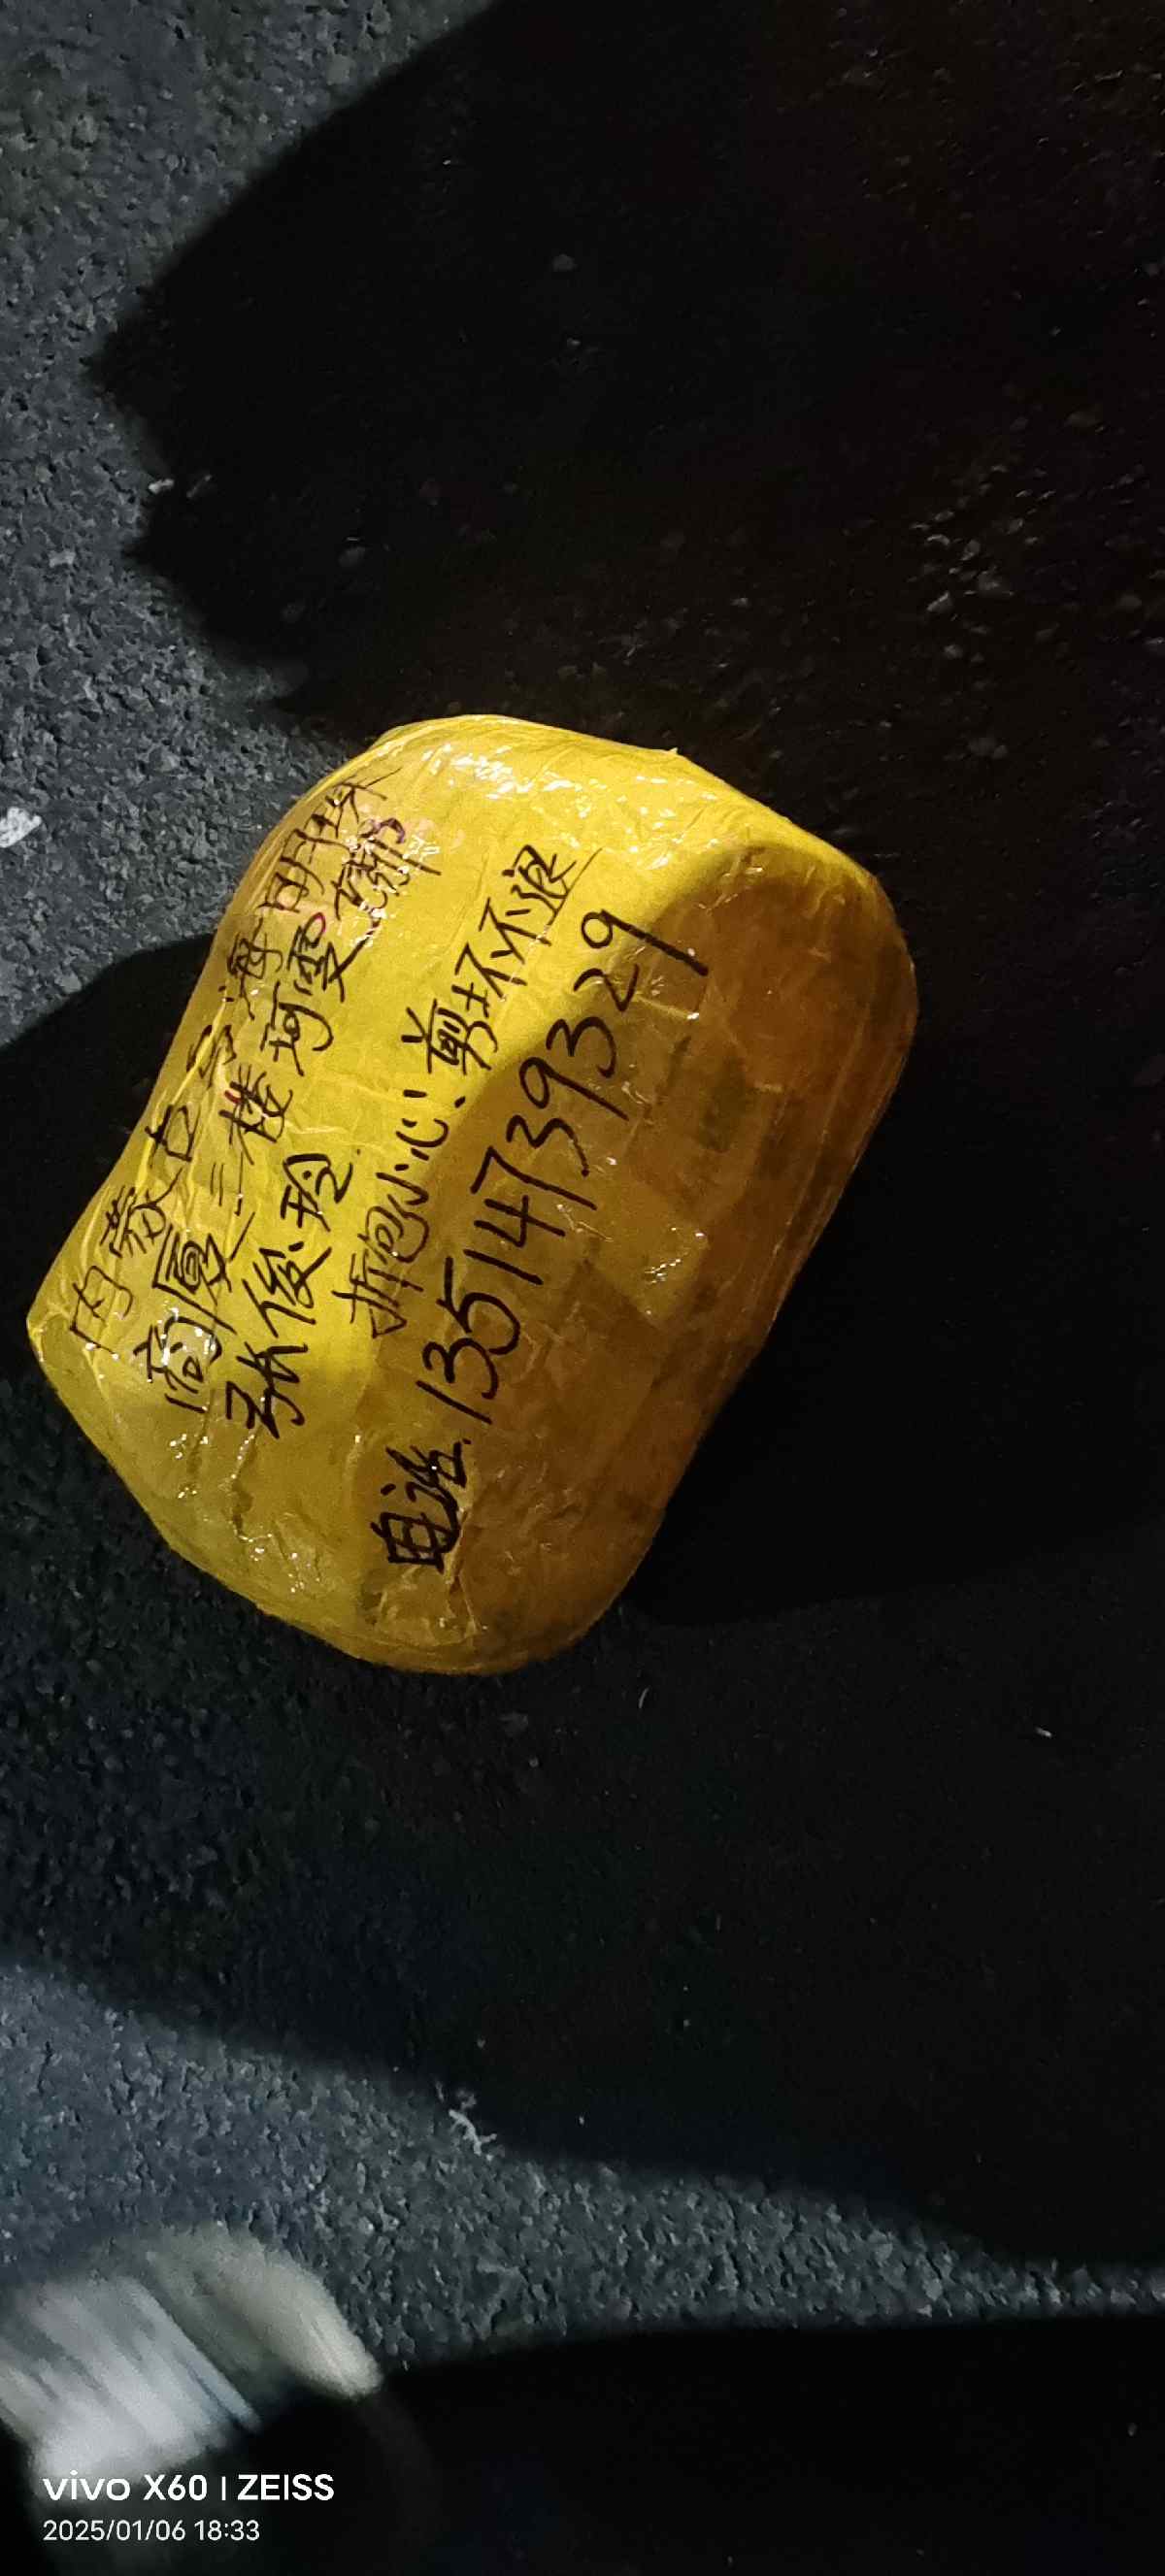 内蒙古乌海明珠
商厦三楼珂雯
孙俊玲
拆包小心、剪坏不退
电话.13514739329
vivo X60 | ZEISS
2025/01/06 18:33